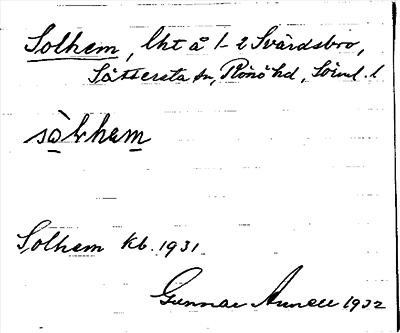 Solhem, lht å 1-2 Svärdsbro,
Sättersta sn, Rönö hd, Söml. l
sò̱lhem̱
Solhem Kb. 1931
Gunnar Annell 1932